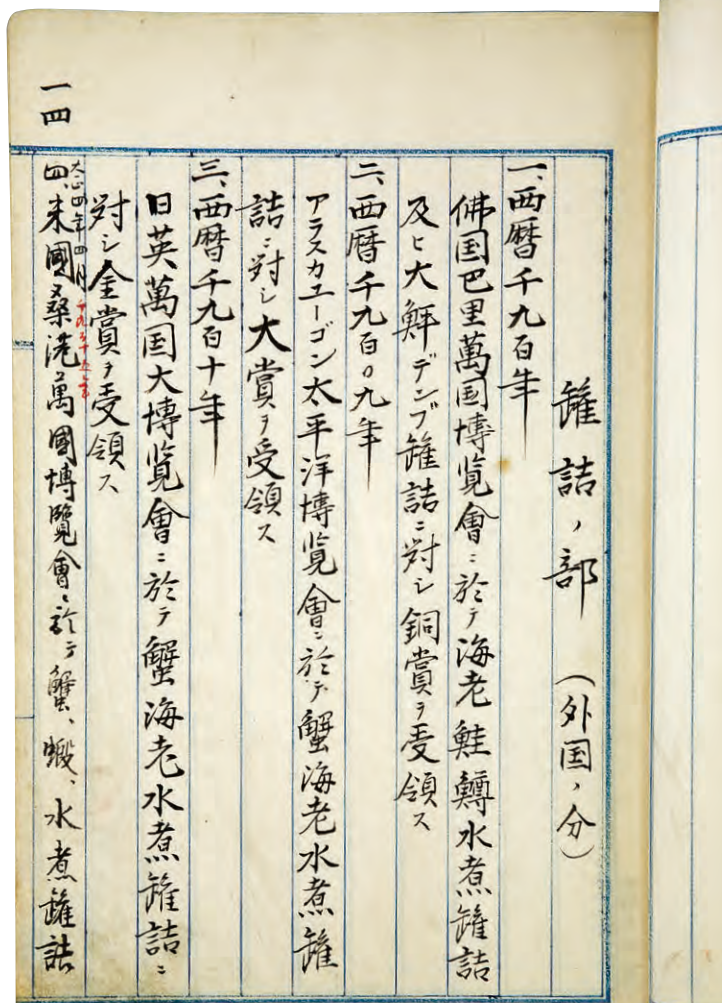 罐詰ノ部 (外国ノ分)
一、西暦千九百年
佛国巴里萬国博覧會ニ於テ海老鮭鱒水煮罐詰
及ヒ大鮃デンブ罐詰ニ対シ銅賞ヲ受領ス
二、西暦千九百〇九年
アラスカユーゴン太平洋博覧會ニ於テ蟹海老水煮罐
詰ニ対シ大賞ヲ受領ス
三、西暦千九百十年
日英萬国大博覧會ニ於テ蟹海老水煮罐詰ニ
対シ金賞ヲ受領ス
大正四年四月 千九百十五年
四、米國桑港萬國博覽會ニ於テ蟹、蝦、水煮罐詰
一四